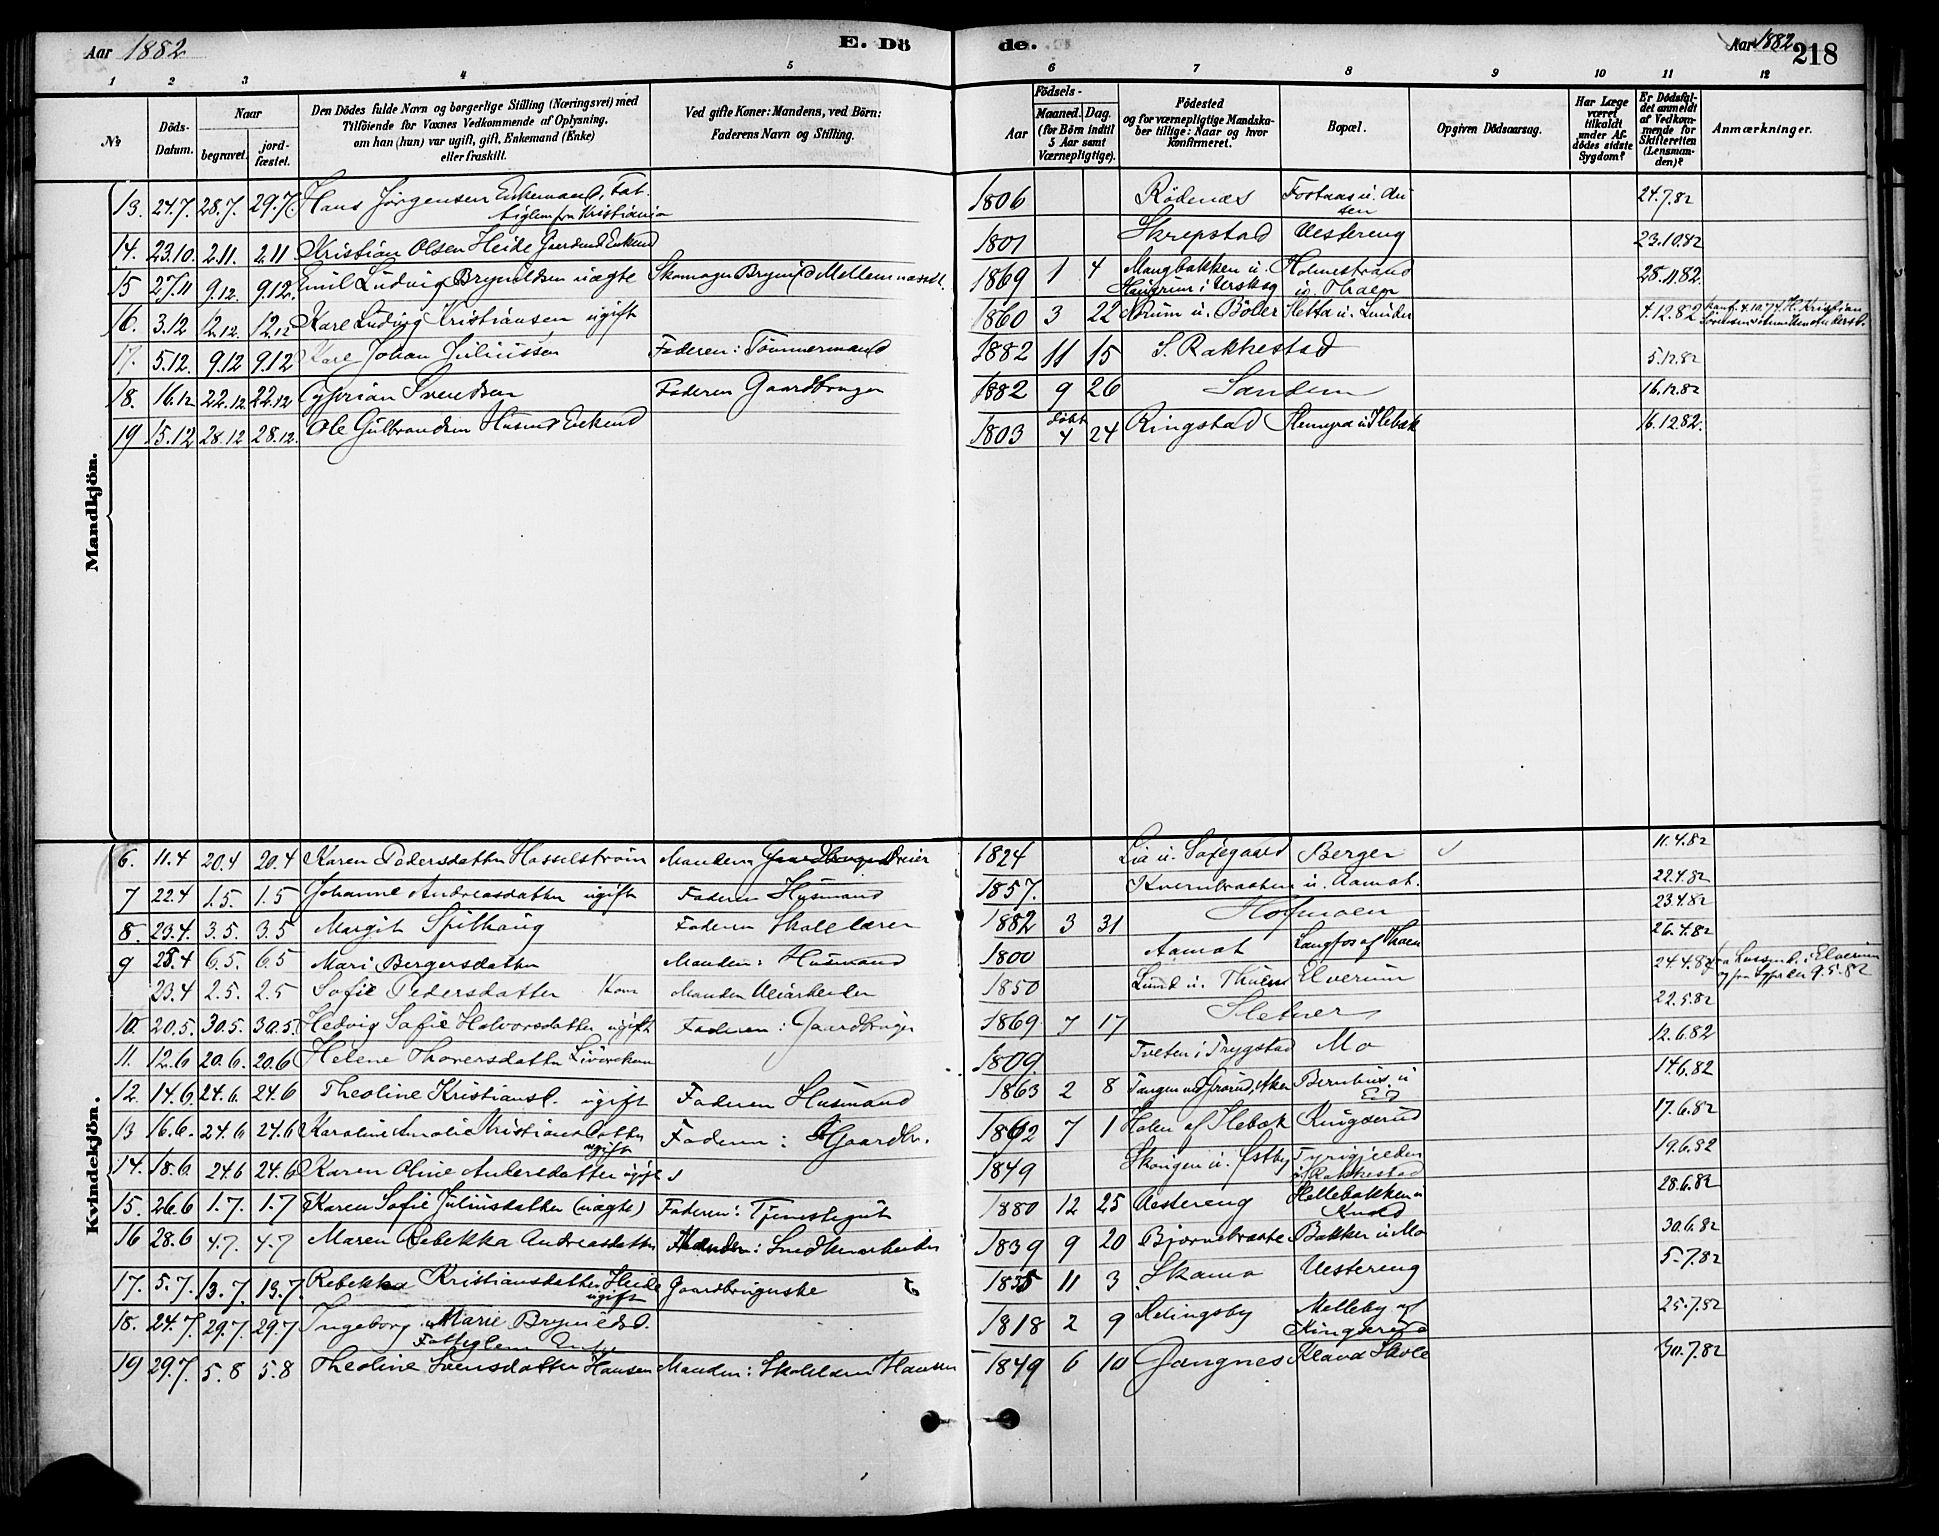 Aar 1882
E. Dö
de.
Aar 1882
218
1 2 3 4 5 6 7 8 9 10 11 12
No
Döds-Datum.
Naar
begravet.
jord-fæstet.
Den Dödes fulde Navn og borgerlige Stilling (Næringsvei) med
Tilföiende for Voxnes Vedkommende af Oplysning,
om han (hun) var ugift, gift, Enkemand (Enke)
eller fraskilt.
Ved gifte Koner: Mandens, ved Börn:
Faderens Navn og Stilling.
Födsels-
Aar
Maaned. Dag.
(for Börn indtil
5 Aar samt
Værnepligtige).
Födested
og for værnepligtige Mandska-
ber tillige: Naar og hvor
konfirmeret.
Bopæl.
Opgiven Dödsaarsag.
Har Læge
været
tilkaldt
under Af-
dödes sidste
Sygdom?
Er Dödsfal-
det anmeldt
af Vedkom-
mende for
Skifteretten
(Lensman-
den)?
Anmærkninger.
Mandkjön.
13. 24.7. 28.7. 29.7. Hans Jørgensen Enkemand, Fat- 1806 Rødenæs 24.7.82
tiglem fra Kristiania
14. 23.10. 2.11. 2.11 Kristian Olsen Heide Gaardmd Enkemd 1801 Skrepstad Vestereng 23.10.82
15 27.11 9.12. 9.12. Emil Ludvig Brynildsen uægte Skomager Brynild 1869 1 4 Mangbakken u. Holmestrand 28.11.82.
16. 3.12 12.12. 12.12 Karl Ludvig Kristiansen ugift 1860 3 22 Norum u. Böler 4.12.82
17. 5.12. 9.12 9.12 Karl Johan Juliussen Faderen: Tömmermand 1882 11 15 S. Rakkestad 5.12.82
18. 16.12 22.12 22.12 Cyprian Svendsen Faderen Gaardbruger 1882 9 26 Sandem 16.12.82
19 15.12 28.12 28.12. Ole Gulbrandsen Husmd Enkemd 1803 døbt 4 24 Ringstad 16.12.82.
Kvindekjön.
6. 11.4 20.4 20.4 Karen Pedersdatter Hasselstrøm Manden Gaardbruger Dreier 1824 Lia u. Berger 11.4.82
7 22.4 1.5. 1.5 Johanne Andreasdatter ugift Faderen Husmand 1857. Kvernbraaten u. Aamot. 22.4.82
8. 23.4. 3.5. 3.5 Margit Spilhaug Faderen Skolelærer 1882 3 31 Hofmoen 23.4.82
9 25.4 6.5. 6.5 Mari Bergersdatter Manden: Husmand 1800 Aamot Langfos af Thoen 26.4.82
23.4 2.5. 2.5 Sofie Pedersdatter Kone Manden 1850 Lund u. Thoen Elverum 24.4.82
10. 20.5. 30.5. 30.5. Hedvig Sofie Halvorsdatter ugift Faderen: Gaardbruger 1869 7 17 Sletner 22.5.82
11. 12.6 20.6. 20.6 Helene Thoresdatter 1809. Tveten i Trygstad Mo 12.6.82
12. 14.6. 24.6. 24.6 Theoline Kristiansd. ugift Faderen Husmand 1863 2 8 14.6.82
13 16.6. 24.6 24.6 Karoline Amalie Kristiansdatter Faderen: Gaardbr. 1862 7 1 Holen af Slebæk Kingsrud 17.6.82
ugift
14. 18.6 24.6 24.6 Karen Oline Andersdatter ugift 1849 Skougen u. Østby 19.6.82
u. Rakkestad
15. 26.6 1.7. 1.7 Karen Sofie Juliusdatter (uægte) Faderen: Tjenestegut 1880 12 25 Vestereng 28.6.82
16 28.6 4.7. 4.7 Maren Rebekka Andreasdatter Manden: Snedkerarbeider 1839 9 20 Bjørnebraate Bakken u. Mo 30.6.82
17. 5.7. 13.7. 13.7. Rebekka Kristiansdatter Heide Gaardbrugerske 1835 11 3 Skamo Vestereng 5.7.82
ugift
18. 24.7. 29.7. 29.7 Ingeborg Marie Brynildsd. 1818 2 9 Melleby af 25.7.82
Fattiglem Enke Kingsrud
19 29.7. 5.8 5.8 Theoline Svensdatter Hansen Manden: Skolelærer Hansen 1849 6 10 Gangnes Klava Skole 30.7.82